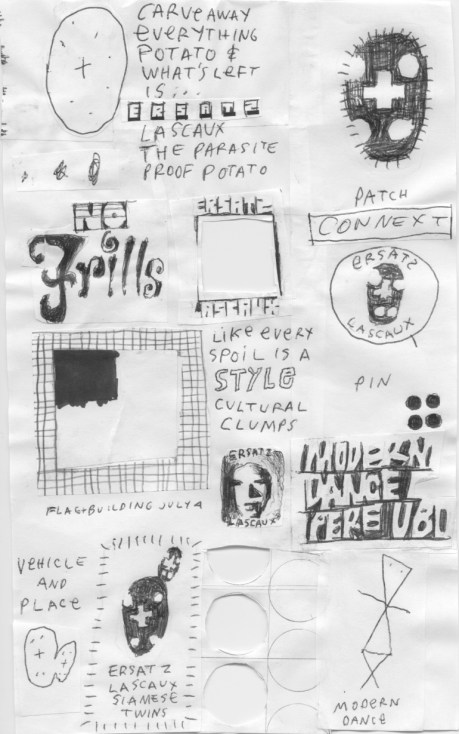 CARVE AWAY
EVERYTHING
POTATO &
WHAT'S LEFT
IS...
ERSATZ
LASCAUX
THE PARASITE
PROOF POTATO
PATCH
CONNEXT
NO
Frills
ERSATZ
LASCAUX
ERSATZ
LASCAUX
LIKE EVERY
SPOIL IS A
STYLE
CULTURAL
CLUMPS
PIN
FLAG+BUILDING JULY 4
ERSATZ
LASCAUX
MODERN
DANCE
PERE UBU
VEHICLE
AND
PLACE
ERSATZ
LASCAUX
SIAMESE
TWINS
MODERN
DANCE